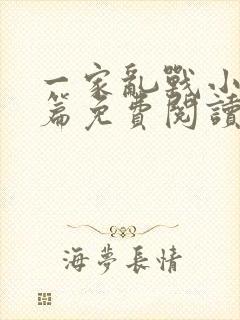 一家亂戰小
篇免費閱讀
海夢長情